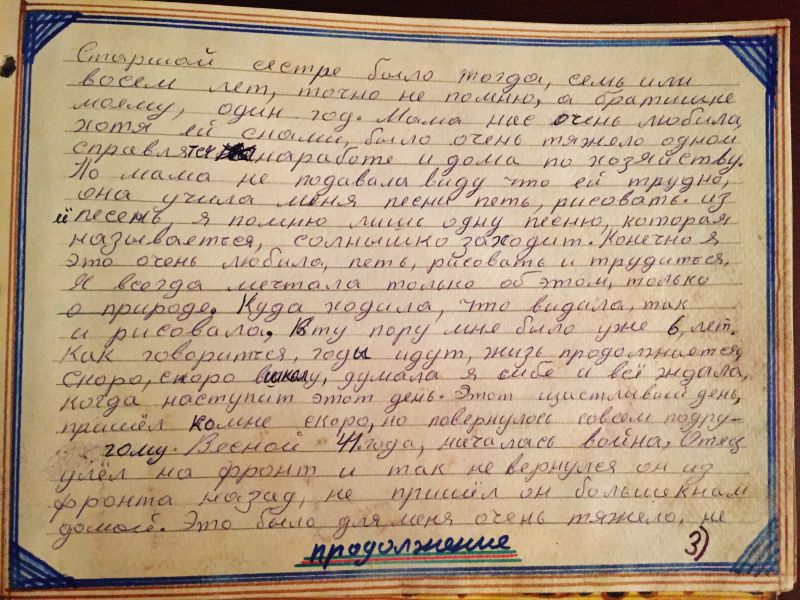 Старшой сестре было тогда, семь или
восем лет, точно не помню, а братишке
моему, один год. Мама нас очень любила,
хотя ей снами, было очень тяжело одной
справлятся наработе и дома по хозяйству.
Но мама не подавала виду что ей трудно,
она учила меня песни петь, рисовать. из
её песень, я помню лишь одну песню, которая
называется, солнышко заходит. Конечно я
это очень любила, петь, рисовать и трудиться,
Я всегда мечтала только об этом, только
о природе. Куда ходила, что видила, так
и рисовала. Вту пору мне было уже 6, лет.
Как говориться, годы идут, жизь продолжается,
скоро, скоро вшколу, думала я себе и всё ждала,
когда наступит этот день. Этот щастливый день,
пришёл комне скоро, но повернулось совсем подру-
гому. Весной 41.года, началась война. Отец
ушёл на фронт и так не вернулся он из
фронта назад, не пришёл он большекнам
домой. Это было для меня очень тяжело, не
продолжение
3)